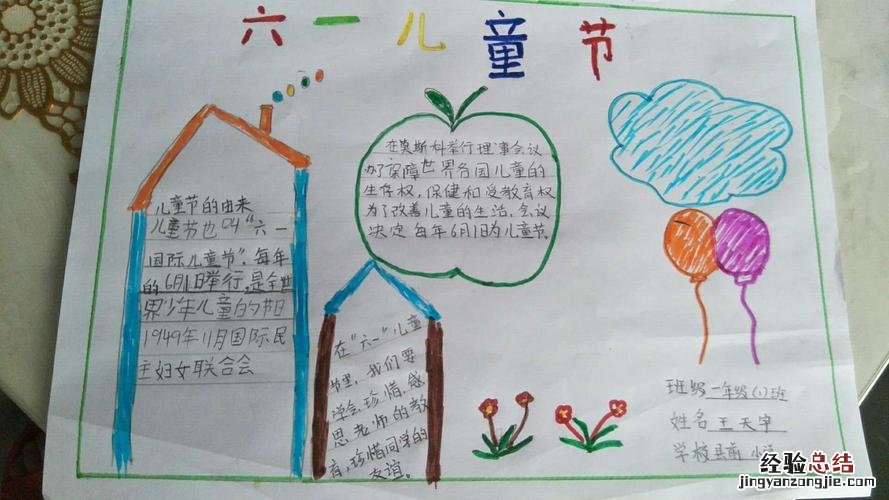 六一儿童节
儿童节的由来
儿童节也叫"六一
国际儿童节",每年
的6月1日举行,是全世
界少年儿童的节日
1949年11月国际民
主妇女联合会
在莫斯科举行理事会议
为了保障世界各国儿童的
生存权,保健和受教育权
为了改善儿童的生活,会议
决定每年6月1日为儿童节。
在"六一"儿童
节里,我们要
学会珍惜,感
恩老师的教
育,珍惜同学的
友谊。
班级一年级(1)班
姓名王天宇
学校县前小
经验总结
jingyanzongjie.com